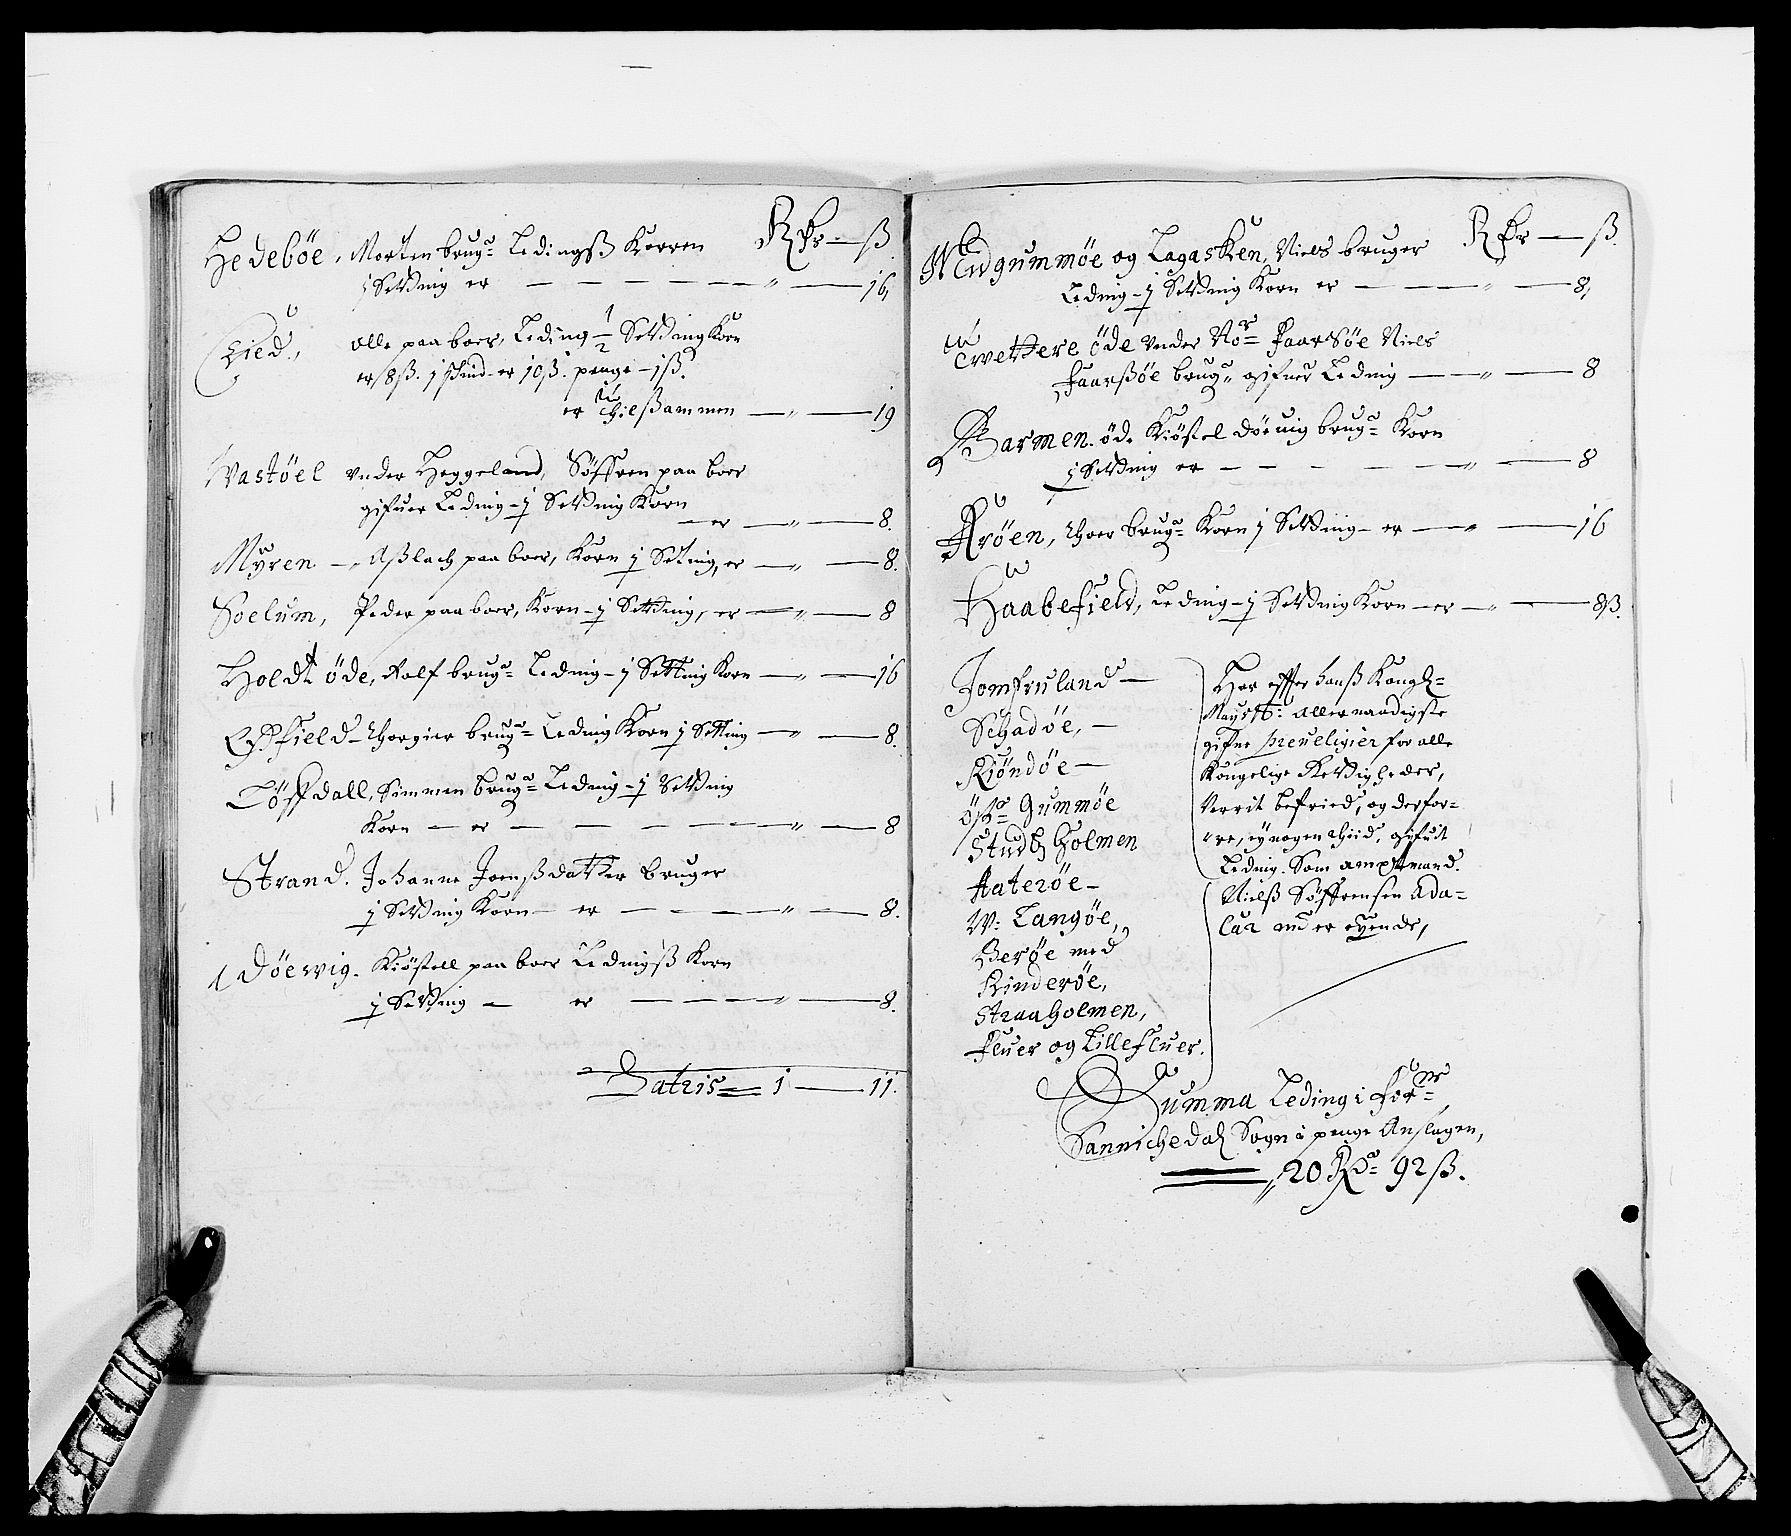 Rdr — ß
Hedebøe, Morten brugr Ledingß Korren
j Setting er — 16,
Lied, Olle paa boer, Leding ½ Setting Korn
er 8 ß. j schind er 10 ß. penge — 1 ß.
er thilßammen — 19
Wastøel vnder Heggeland, Søffren paa boer
gifuer Leding — j Setting Korn
— er — 8.
Myren — Aßlach paa boer, Korn j Setting, er — 8.
Soelum, Peder paa boer, Korn — j Setting, er — 8
Holdt øde, Rolf brugr Leding — j Setting Korn — 16
field — Thorgier brugr Leding Korn j Setting — 8.
Tøffdall, Simmen brugr Leding — j Setting
Korn — er — 8
Strand. Johanne Joenßdatter bruger
j Setting Korn — er — 8.
Døewig. Kiøstell paa boer Ledingß Korn
j Setting — er — 8.
Latris — 1 — 11.
Rdr — ß.
Gummøe og Lagasken, Niels bruger
Leding — j Setting Korn er — 8,
øde vnder Faarsøe Niels
Faarßøe brugr gifuer Leding — 8
Barmen øde Kiøstel Døeuig brugr Korn
j Setting er — 8
Arøen, Thoer brugr Korn j Setting — er — 16
Haabefield, Leding — j Setting Korn — er — 8 ß.
Jomfruland —
Schadøe, —
Riøndøe —
Gummøe
Holmen
Aaterøe —
W: Langøe,
Berøe med
Rinderøe,
Straaholmen,
Fluer og Lillefluer.
Har effter hanß Kongl=
Mayst: allernaadigste
gifne preueligier for alle
Kongelige Rettigheder,
Verrit befried, og derfor=
re, ey nogen thiid, gifuit
Leding. Som amptmand.
Nielß Søffrensen Ada=
Lar nu er eyende,
Summa Leding i
Sannichedal Sogn i penge Anslagen,
20 Rdr 92 ß.